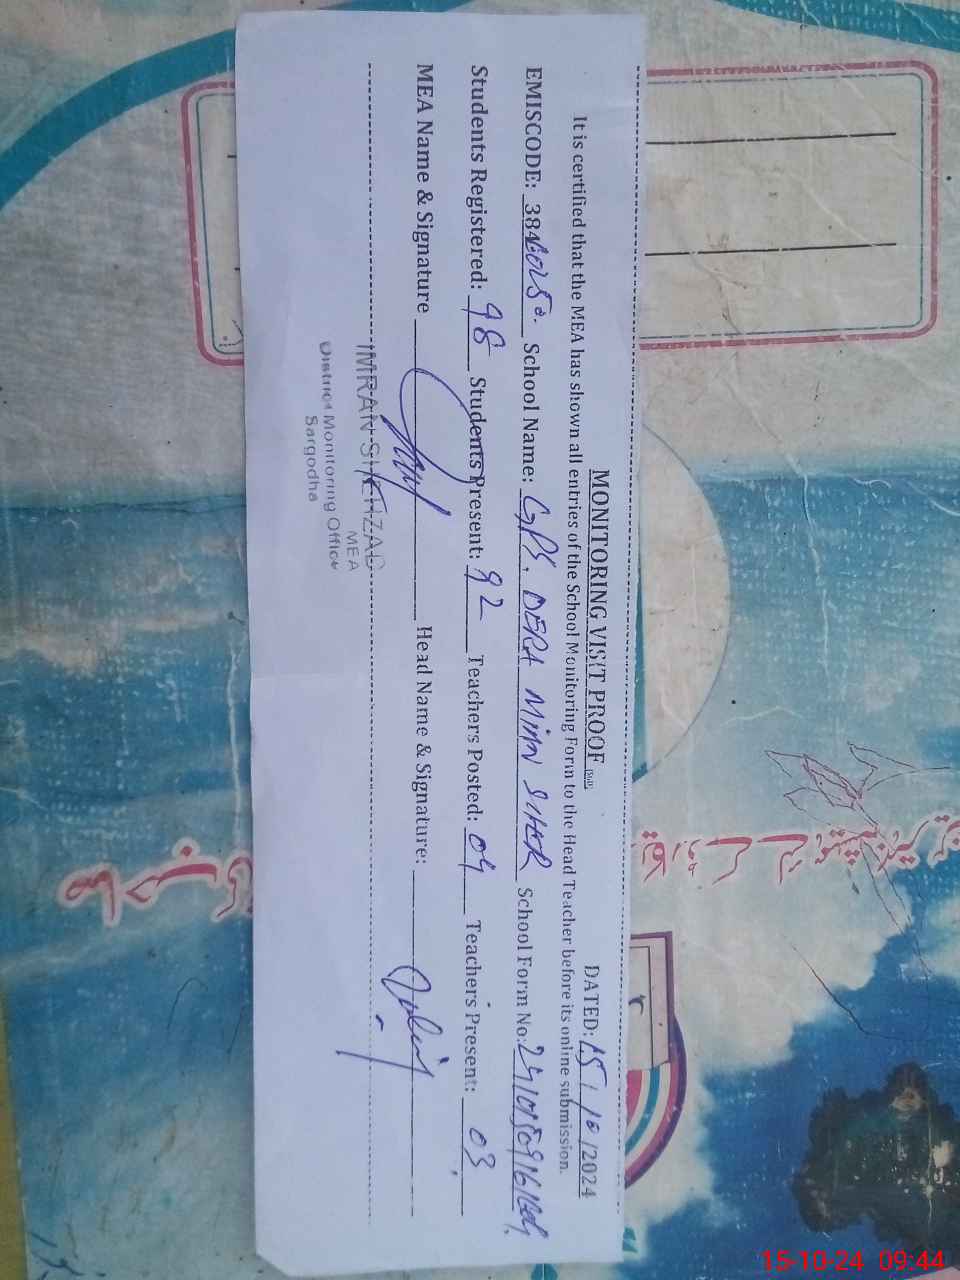 MONITORING VISIT PROOF
DATED: 15/10/2024
It is certified that the MEA has shown all entries of the School Monitoring Form to the Head Teacher before its online submission.
EMISCODE: School Name: G.P.S. DERA MIAN SHER School Form No:
Students Registered: 98 Students Present: 92 Teachers Posted: 04 Teachers Present: 03
MEA Name & Signature Head Name & Signature:
IMRAN SHEHZAD
MEA
District Monitoring Office
Sargodha
15-10-24 09:44